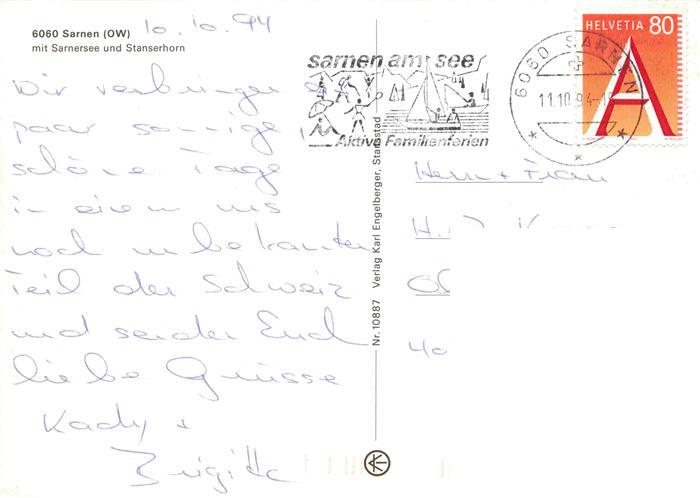 6060 Sarnen (OW)
mit Sarnersee und Stanserhorn
10.10.94
Wir verbringen ein
paar sonnige,
schöne Tage
in einem uns
noch unbekannten
Teil der Schweiz
und senden Euch
liebe Grüsse
Kady +
Brigitte
Nr. 10887 Verlag Karl Engelberger, Stansstad
sarnen am see
Aktive Familienferien
6060 SARNEN
11.10.94-1
HELVETIA 80
A
Herrn + Frau
H.
40